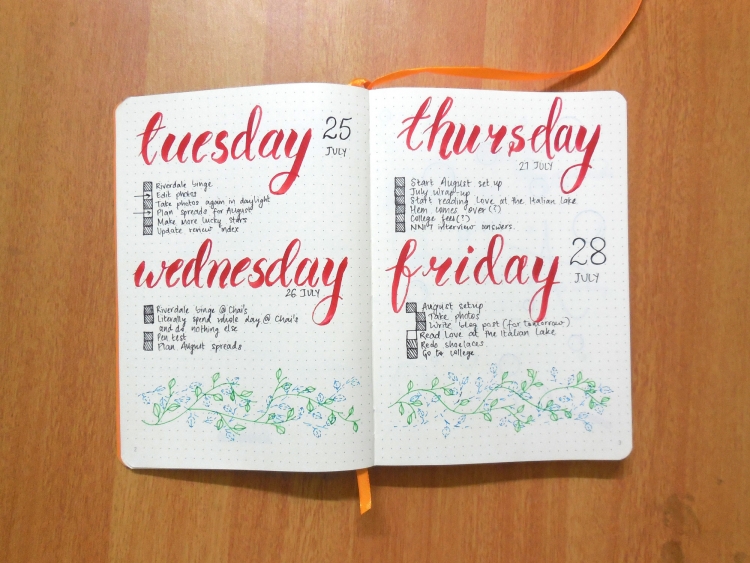 tuesday
25
JULY
Riverdale binge
Edit photos
Take photos again in daylight
Plan spreads for August
Make more lucky stars
Update review index
wednesday
26 JULY
Riverdale binge @ Chai's
Literally spend whole day @ Chai's
and do nothing else
Pen test
Plan August spreads
thursday
27 JULY
Start August set up
July wrap-up
Start reading Love at the Italian Lake
Mem comes over(?)
College fees(?)
interview answers.
friday
28
JULY
August setup
Take photos
Write blog post (for tomorrow)
Read Love at the Italian Lake
Redo shoelaces
Go to college